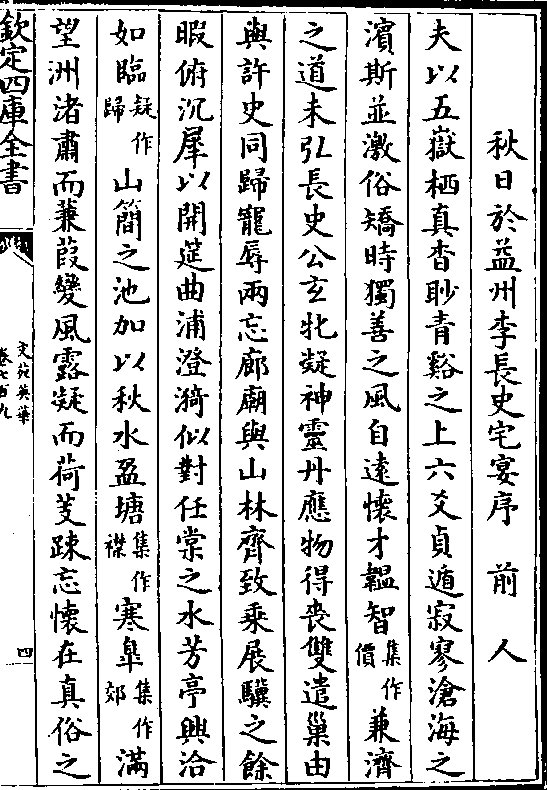 秋日於益州李長史宅宴序　前人
夫以五嶽栖真杳眇青谿之上六爻貞遁寂寥滄海之
濱斯並激俗矯時獨善之風自逺懷才韞智集作價兼濟
之道未弘長史公玄牝凝神靈丹應物得喪雙遣巢由
與許史同歸寵辱兩忘廊廟與山林齊致乗展驥之餘
暇俯沉犀以開筵曲浦澄漪似對任棠之水芳亭興洽
如臨疑作歸山簡之池加以秋水盈塘集作襟寒臯集作郊滿
望洲渚肅而蒹葭變風露凝而荷芰踈忘懷在真俗之
欽定四庫全書
文苑英華
卷七百九
四